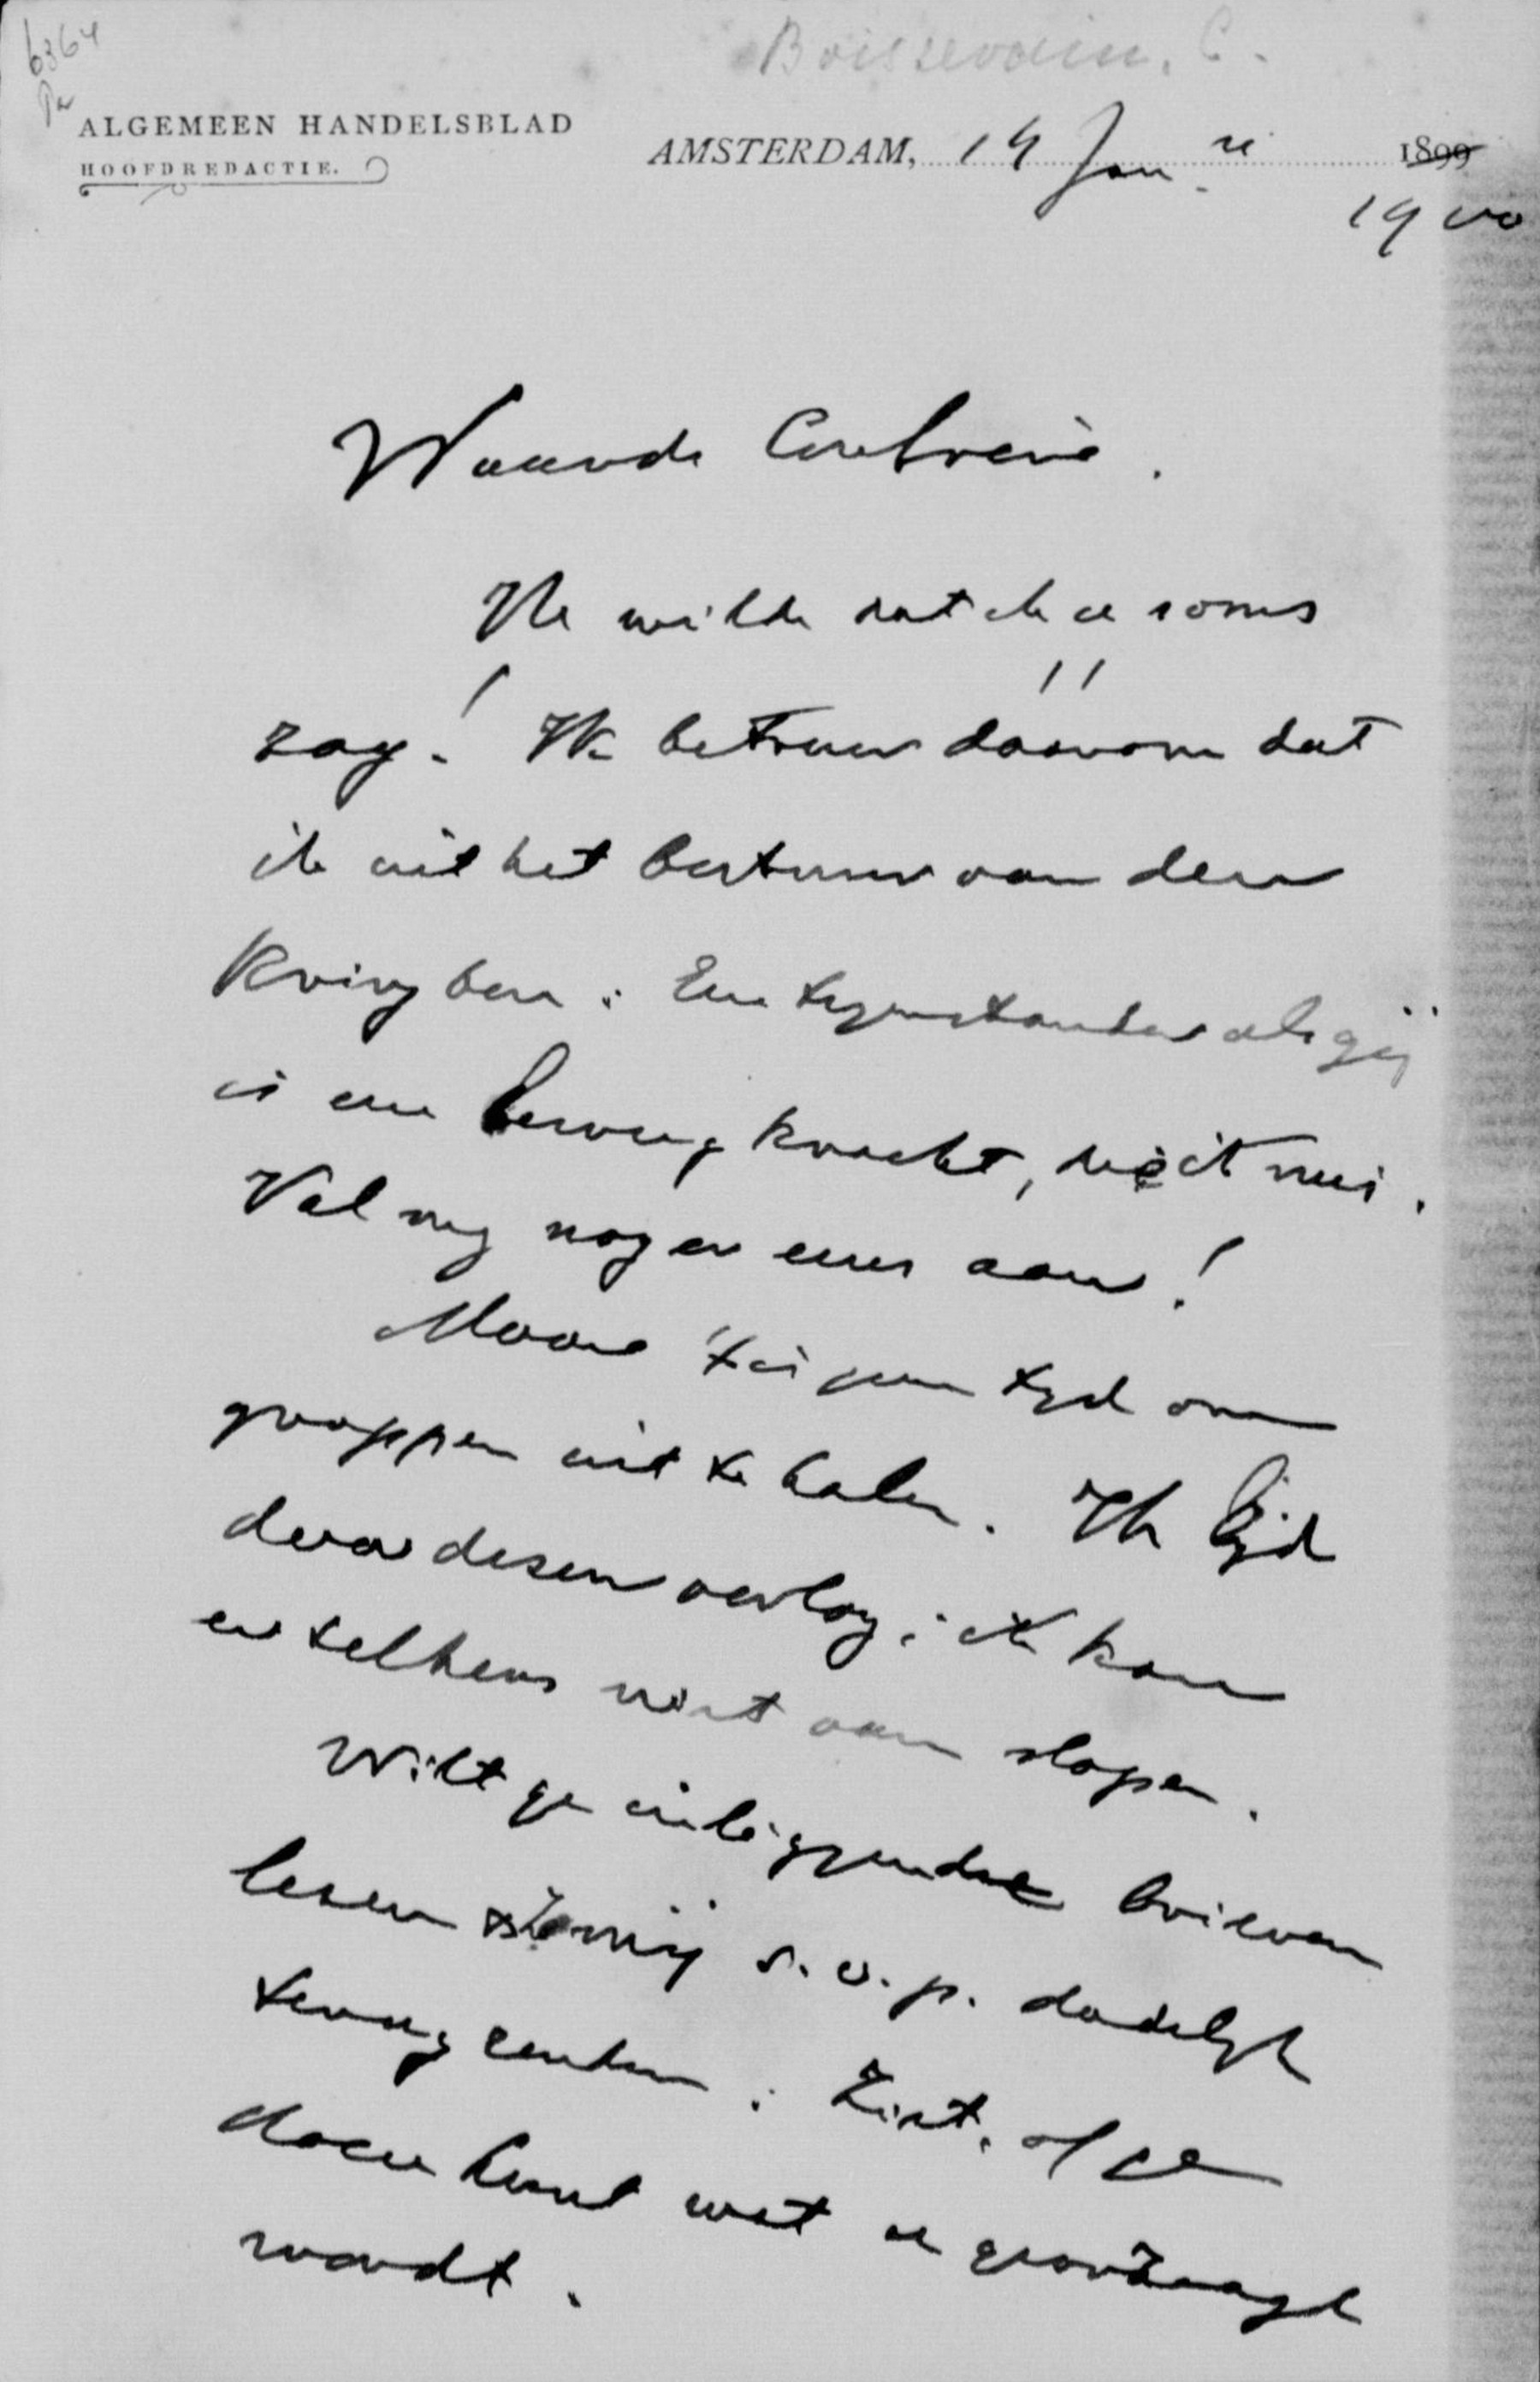 6364
Boissevain, C.
ALGEMEEN HANDELSBLAD
HOOFDREDACTIE.
AMSTERDAM, 14 Jan. 1899
1900
Waarde Confrère.
Ik wilde dat ik u soms
zag! Ik betreur daarom dat
ik uit het bestuur van den
Kring ben. Een tegenstander als gij
is een beweegkracht,
Val mij nog er eens aan!
Maar 't is geen tijd om
grappen uit te halen. Ik lijd
door dezen oorlog; ik kan
er telkens niet van slapen.
Wilt ge inliggende brieven
lezen mij s.v.p. dadelijk
terugzenden. Ziet of ge
doen kunt wat u gevraagd
wordt.